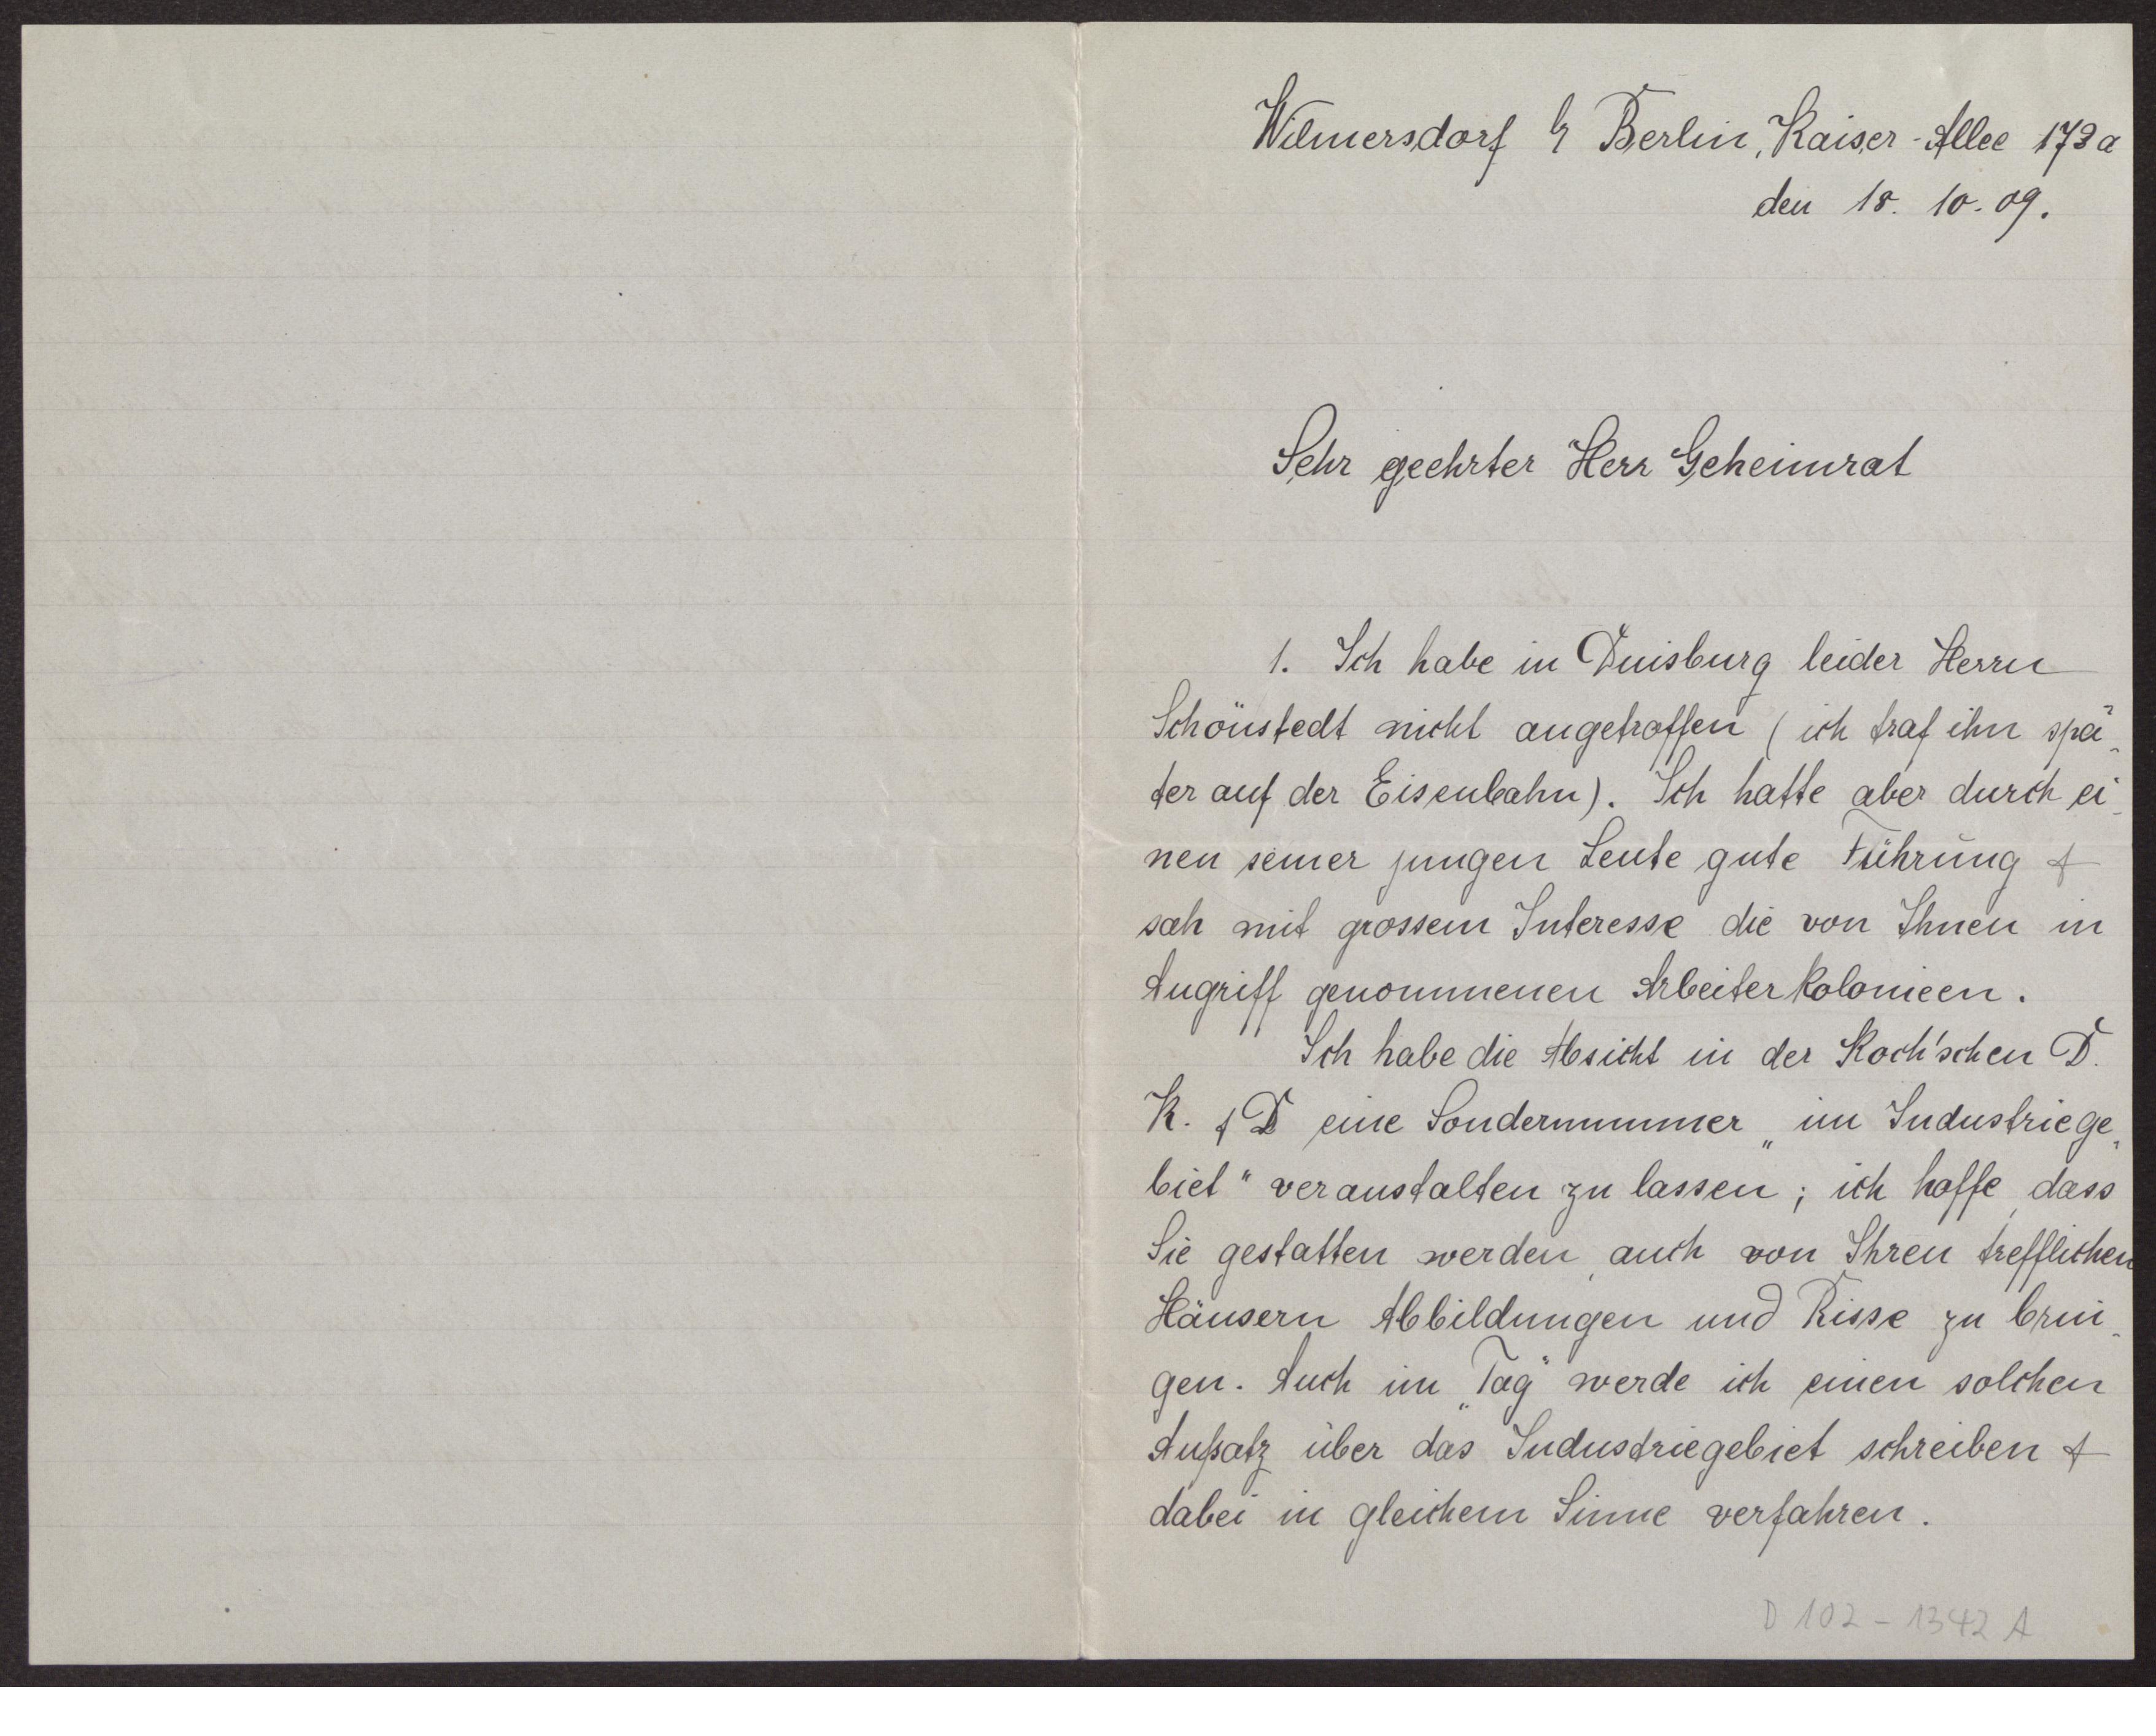 Wilmersdorf b Berlin, Kaiser-Allee 173a
den 18. 10. 09.
Sehr geehrter Herr Geheimrat
1. Ich habe in Duisburg leider Herrn
Schönstedt nicht angetroffen (ich traf ihn spä-
ter auf der Eisenbahn). Ich hatte aber durch ei-
nen seiner jungen Leute gute Führung &
sah mit grossem Interesse die von Ihnen in
Angriff genommenen Arbeiterkolonieen.
Ich habe die Absicht in der Koch'schen D.
K. & D eine Sondernummer „im Industriege-
biet" veranstalten zu lassen; ich hoffe, dass
Sie gestatten werden, auch von Ihren trefflichen
Häusern Abbildungen und Risse zu brin-
gen. Auch im „Tag" werde ich einen solchen
Aufsatz über das Industriegebiet schreiben &
dabei in gleichem Sinne verfahren.
D 102 - 1342 A